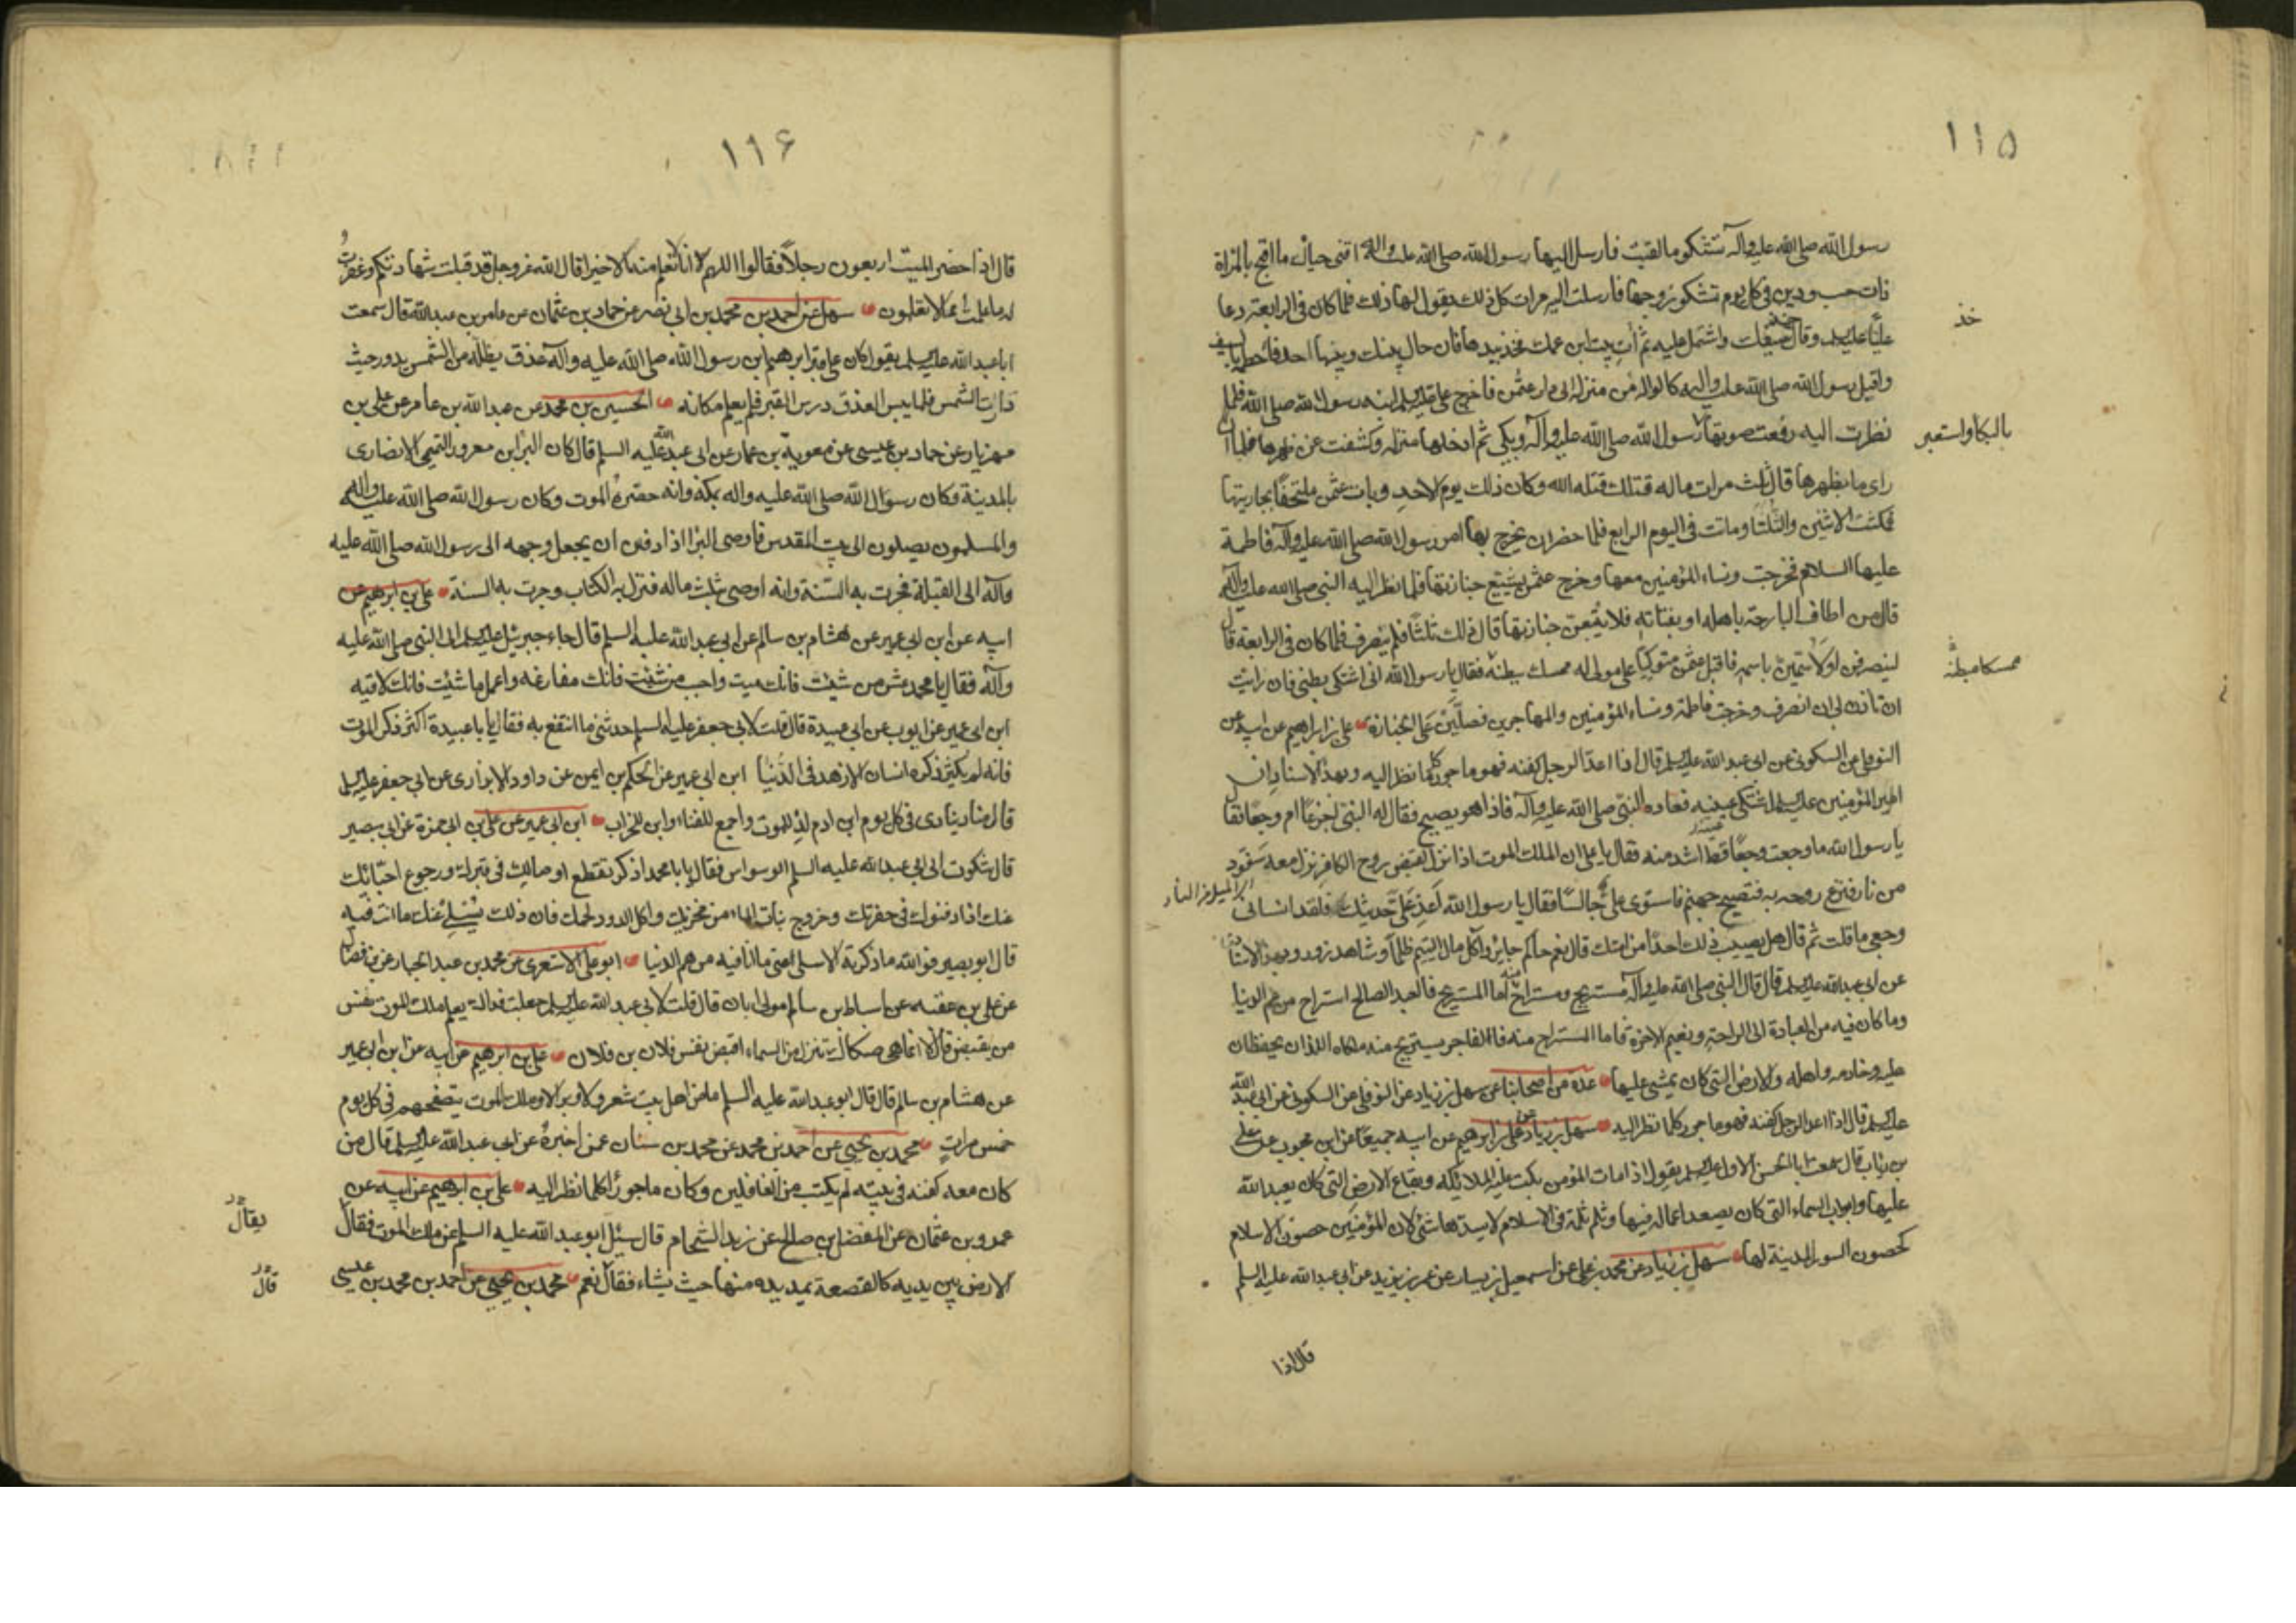 ١١٥
رسول الله صلى الله عليه وآله تشكو ما لقيت فارسل اليها رسول الله صلى الله عليه وآله اقنى حياك ما اقبح بالمراة
ذات حسب ودين في كل يوم تشكو زوجها فارسلت اليه مرات كل ذلك يقول لها ذلك فلما كان في الرابعة دعا
خذ
عليّا عليه السلم وقال خذ سيفك واشتمل عليه ثم أت بيت ابن عمك فخذ بيدها فان حال بينك وبينها احد فاحطمه بالسيف
واقبل رسول الله صلى الله عليه وآله كالواله من منزله الى دار عثمن فاخرج علي عليه السلم ابنة رسول الله صلى الله فلما
نظرت اليه رفعت صوتها رسول الله صلى الله عليه وآله وبكى ثم ادخلها منزله وكشفت عن ظهرها فلما ان
بالبكا واستعبر
راى ما بظهرها قال ثلث مرات ماله قتلك قتله الله وكان ذلك يوم الاحد وبات عثمن ملتحفًا بجاريتها
فمكثت الاثنين والثلثا وماتت في اليوم الرابع فلما حضر ان يخرج بها امر رسول الله صلى الله عليه وآله فاطمة
عليها السلام فخرجت ونساء المؤمنين معها وخرج عثمن يشيع جنازتها فلما نظر اليه النبي صلى الله عليه وآله
قال من اطاف البارحة باهله او بفتاته فلا يتبعن جنازتها قال ذلك ثلثًا فلم ينصرف فلما كان في الرابعة قال
لينصرفن او لأسمين باسمه فاقبل عثمن متوكيًا على مولى له ممسك ببطنه فقال يا رسول الله انى اشتكى بطني فان رايت
ممسكا ببطنه
ان تاذن لى ان انصرف وخرجت فاطمة ونساء المؤمنين والمهاجرين فصلّين على الجنازة علي بن ابراهيم عن ابيه عن
النوفلي عن السكوني عن ابى عبد الله عليه السلم قال اذا اعدّ الرجل كفنه فهو ماجور كلما نظر اليه وبهذا الاسناد ان
امير المؤمنين عليه السلم اشتكى عينيه فعاده النبيّ صلى الله عليه وآله فاذا هو يصيح فقال له النبيّ اجزعًا ام وجعًا فقال
يا رسول الله ما وجعت وجعًا قط اشد منه فقال يا علي ان الملك الموت اذا نزل لقبض روح الكافر نزل معه سفود
من نار فنزع روحه به فتصيح جهنم فاستوى علي جالسًا فقال يا رسول الله أعد علَيَّ حديثك فلقد انسانى
وجعى ما قلت ثم قال هل يصيب ذلك احدًا من امتك قال نعم حاكم جاير وآكل مال اليتيم ظلمًا وشاهد زور وبهذا الاسناد
عن ابى عبد الله عليه السلم قال قال النبى صلى الله عليه وآله مستريح ومستراح منه اما المستريح فالعبد الصالح استراح من غم الدنيا
وما كان فيه من العبادة الى الراحة ونعيم الاخرة فاما المستراح منه فالفاجر يستريح منه ملكاه اللذان يحفظان
عليه وخادمه واهله والارض التي كان يمشي عليها عدة من اصحابنا عن سهل بن زياد عن النوفلي عن السكونى عن ابى عبد الله
عليه السلم قال اذا اعد الرجل كفنه فهو ماجور كلما نظر اليه سهل بن زياد وعلي بن ابراهيم عن ابيه جميعًا عن ابن محبوب عن علي
بن رئاب قال سمعت ابا الحسن الاول عليه السلم يقول اذا مات المؤمن بكت عليه الملائكة وبقاع الارض التي كان يعبد الله
عليها وابواب السماء التي كان يصعد اعماله فيها وثلم ثلمة في الاسلام لا يسدها شئ لان المؤمنين حصون الاسلام
كحصون السور المدينة لها سهل بن زياد عن محمد بن علي عن اسمعيل بن يسار عن عمر بن يزيد عن ابى عبد الله عليه السلم
قال اذا
١١٦
قال اذا حضر الميت اربعون رجلًا فقالوا اللهم لا انا نعلم منه الا خيرا قال الله عز وجل قد قبلت شهادتكم وغفرت
له ما علمت مما لا تعلمون سهل عن احمد بن محمد بن ابى نصر عن حماد بن عثمان عن عامر بن عبد الله قال سمعت
ابا عبد الله عليه السلم يقول كان على قبر ابرهيم ابن رسول الله صلى الله عليه وآله عذق يظله من الشمس يدور حيث
دارت الشمس فلما يبس العذق درس القبر فلم يعلم مكانه الحسين بن محمد عن عبد الله بن عامر عن على بن
مهزيار عن حماد بن عيسى عن معوية بن عمار عن ابى عبد الله عليه السلم قال كان البرا بن معرور التيمي الانصارى
بالمدينة وكان رسول الله صلى الله عليه واله بمكة وانه حضره الموت وكان رسول الله صلى الله عليه واله
والمسلمون يصلون الى بيت المقدس فاوصى البرا اذا دفن ان يجعل وجهه الى رسول الله صلى الله عليه
وآله الى القبلة فجرت به السنة وانه اوصى بثلث ماله فنزل به الكتاب وجرت به السنة على بن ابرهيم عن
ابيه عن ابن ابى عمير عن هشام بن سالم عن ابى عبد الله عليه السلم قال جاء جبرئيل عليه السلم الى النبى صلى الله عليه
وآله فقال يا محمد عش من شيت فانك ميت واحب من شئت فانك مفارقه واعمل ما شئت فانك لاقيه
ابن ابى عمير عن ايوب عن ابى عبيدة قال قلت لابى جعفر عليه السلم حدثنى ما انتفع به فقال يا با عبيدة اكثر ذكر الموت
فانه لم يكثر ذكره انسان الا زهد فى الدنيا ابن ابى عمير عن الحكم بن ايمن عن داود الابزارى عن ابى جعفر عليه السلم
قال مناد ينادى فى كل يوم ابن ادم لد للموت واجمع للفناء وابن للخراب ابن ابى عمير عن على بن ابى حمزة عن ابى بصير
قال شكوت الى ابى عبد الله عليه السلم الوسواس فقال يا با محمد اذكر تقطع اوصالك فى قبرك ورجوع احبائك
عنك اذا دفنوك فى حفرتك وخروج بنات الماء من منخريك واكل الدود لحمك فان ذلك يسلي عنك ما انت فيه
قال ابو بصير فوالله ما ذكرته الا سلى عنى ما انا فيه من هم الدنيا ابو على الاشعرى عن محمد بن عبد الجبار عن ابن فضال
عن على بن عقبه عن اسباط بن سالم مولى ابان قال قلت لابى عبد الله عليه السلم جعلت فداك يعلم ملك الموت بنفس
من يقبض قال لا انما هى صكاك تنزل من السماء اقبض نفس فلان بن فلان على بن ابرهيم عن ابيه عن ابن ابى عمير
عن هشام بن سالم قال قال ابو عبد الله عليه السلم ما من اهل بيت شعر ولا وبر الا وملك الموت يتصفحهم فى كل يوم
خمس مرات محمد بن يحيى عن احمد بن محمد عن محمد بن سنان عمن اخبره عن ابى عبد الله عليه السلم قال من
كان معه كفنه فى بيته لم يكتب من الغافلين وكان ماجورًا كلما نظر اليه على بن ابرهيم عن ابيه عن
عمرو بن عثمان عن المفضل بن صالح عن زيد الشحام قال سئل ابو عبد الله عليه السلم عن ملك الموت فقال
يقال
الارض بين يديه كالقصعة يمد يده منها حيث يشاء فقال نعم محمد بن يحيى عن احمد بن محمد بن عيسى
قال